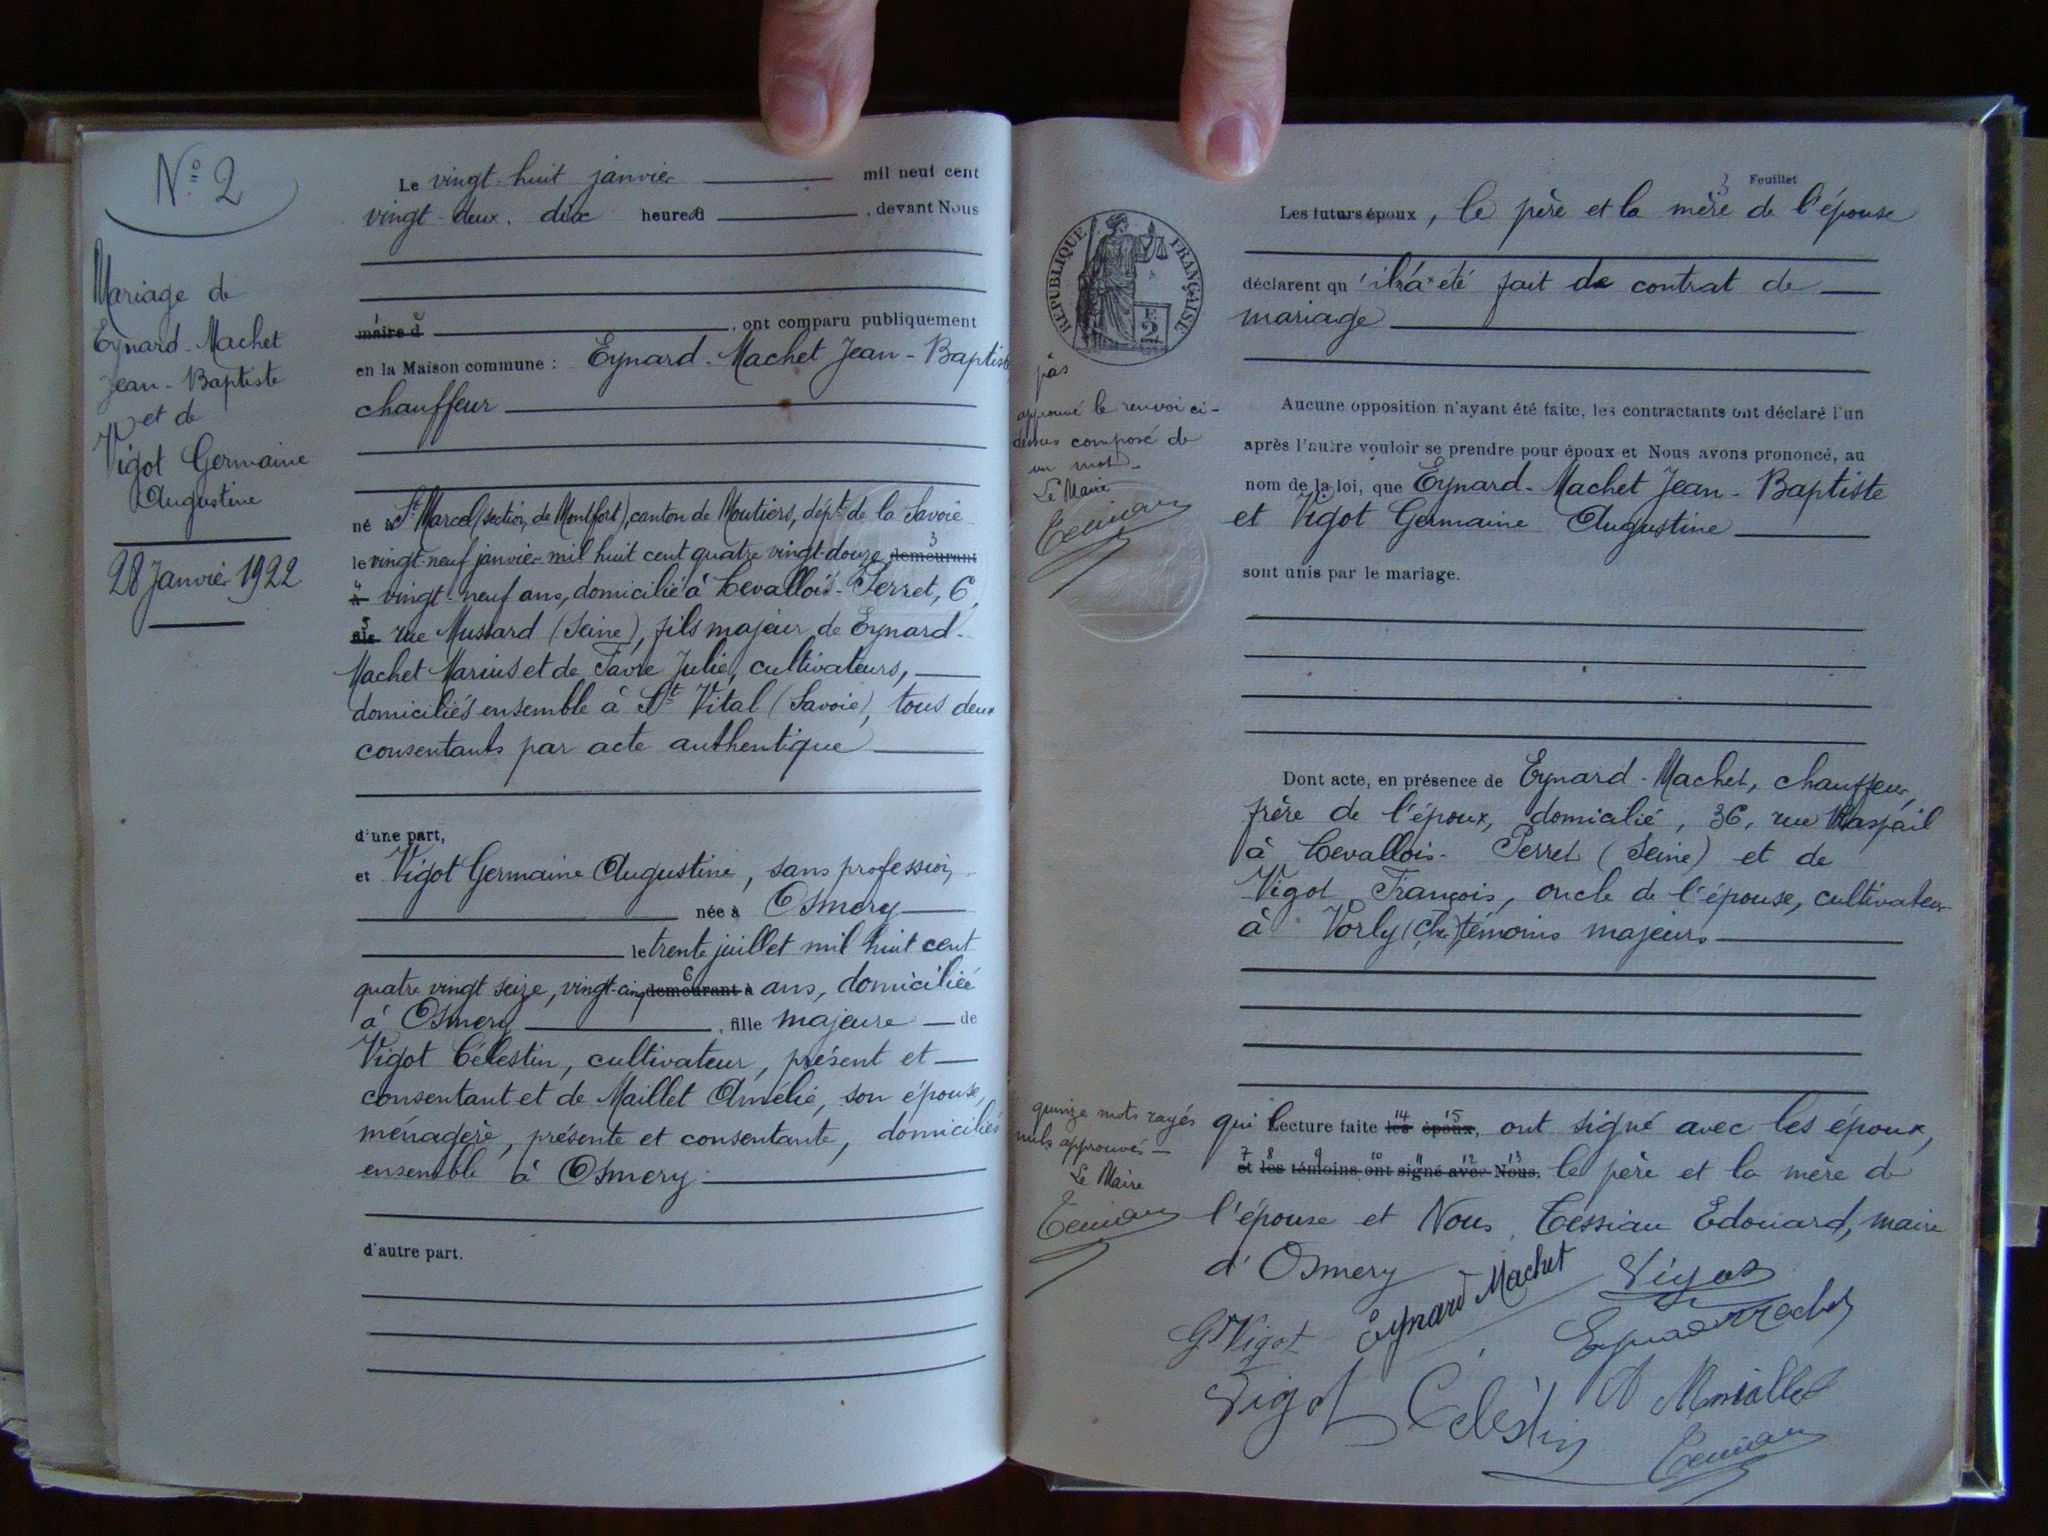 N° 2
Mariage de
Eynard-Machet
Jean-Baptiste
et de
Vigot Germaine
Augustine
28 Janvier 1922
Le vingt-huit janvier mil neuf cent
vingt-deux, dix heures, devant Nous
maire d , ont comparu publiquement
en la Maison commune : Eynard-Machet Jean-Baptiste
chauffeur
né à St Marcel (section de Montfort), canton de Moutiers, dépt de la Savoie
le vingt-neuf janvier mil huit cent quatre vingt-douze 3 demeurant
4 à vingt-neuf ans, domicilié à Levallois-Perret, 6,
5 rue Mussard (Seine), fils majeur de Eynard-
Machet Marius et de Favre Julie, cultivateurs,
domiciliés ensemble à St Vital (Savoie), tous deux
consentants par acte authentique
d'une part,
et Vigot Germaine Augustine, sans profession,
née à Osmery
le trente juillet mil huit cent
quatre vingt seize, vingt-cinq 6 demeurant à ans, domiciliée
à Osmery , fille majeure de
Vigot Célestin, cultivateur, présent et
consentant et de Maillet Amélie, son épouse,
ménagère, présente et consentante, domiciliés
ensemble à Osmery
d'autre part.
3 Feuillet
RÉPUBLIQUE FRANÇAISE
2
Les futurs époux, le père et la mère de l'épouse
déclarent qu'il n'a été fait de contrat de
mariage
pas
approuvé le renvoi ci-
dessus composé de
un mot
Le Maire
Tessiau
Aucune opposition n'ayant été faite, les contractants ont déclaré l'un
après l'autre vouloir se prendre pour époux et Nous avons prononcé, au
nom de la loi, que Eynard-Machet Jean-Baptiste
et Vigot Germaine Augustine
sont unis par le mariage.
Dont acte, en présence de Eynard-Machet, chauffeur,
frère de l'époux, domicilié, 36, rue Raspail
à Levallois-Perret (Seine) et de
Vigot François, oncle de l'épouse, cultivateur
à Vorly (Cher) témoins majeurs
quinze mots rayés
nuls approuvés
Le Maire
Tessiau
qui Lecture faite 14 les 15 époux, ont signé avec les époux,
7 et 8 les 9 témoins 10 ont 11 signé 12 avec 13 Nous. le père et la mère de
l'épouse et Nous, Tessiau Edouard, maire
d'Osmery
Eynard Machet
Vigot
G Vigot
Eynard Machet
Vigot Célestin
A Maillet
Tessiau